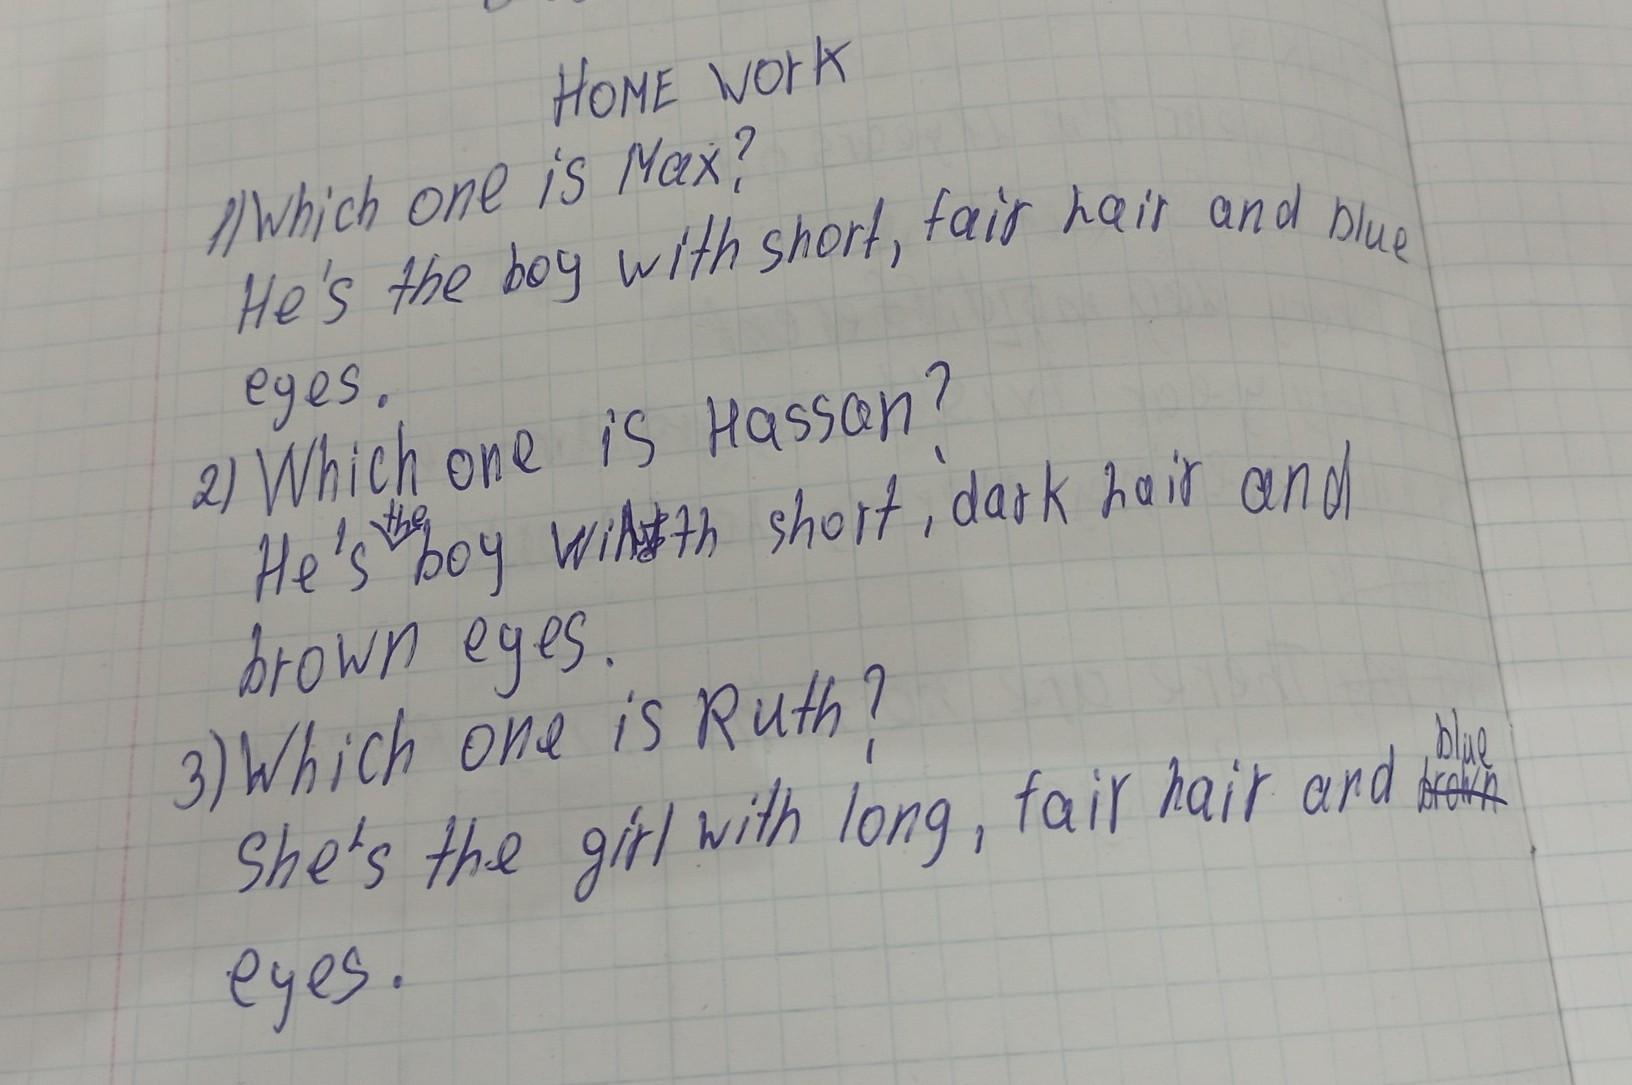 HOME WORK
1) Which one is Max?
He's the boy with short, fair hair and blue
eyes.
2) Which one is Hassan?
He's the boy with short, dark hair and
brown eyes.
3) Which one is Ruth?
She's the girl with long, fair hair and brown blue
eyes.